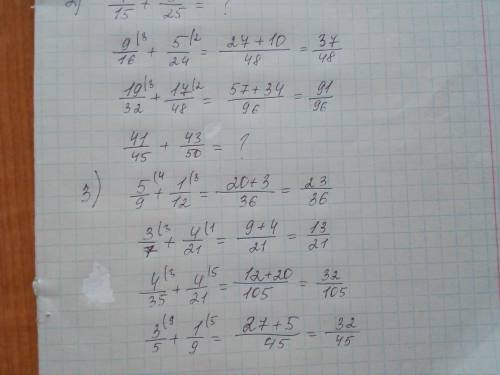 2) /15 + /25 = ?
9/16 (3 + 5/24 (2 = 27+10/48 = 37/48
19/32 (3 + 17/48 (2 = 57+34/96 = 91/96
41/45 + 43/50 = ?
3) 5/9 (4 + 1/12 (3 = 20+3/36 = 23/36
3/7 (3 + 4/21 (1 = 9+4/21 = 13/21
4/35 (3 + 4/21 (5 = 12+20/105 = 32/105
3/5 (9 + 1/9 (5 = 27+5/45 = 32/45